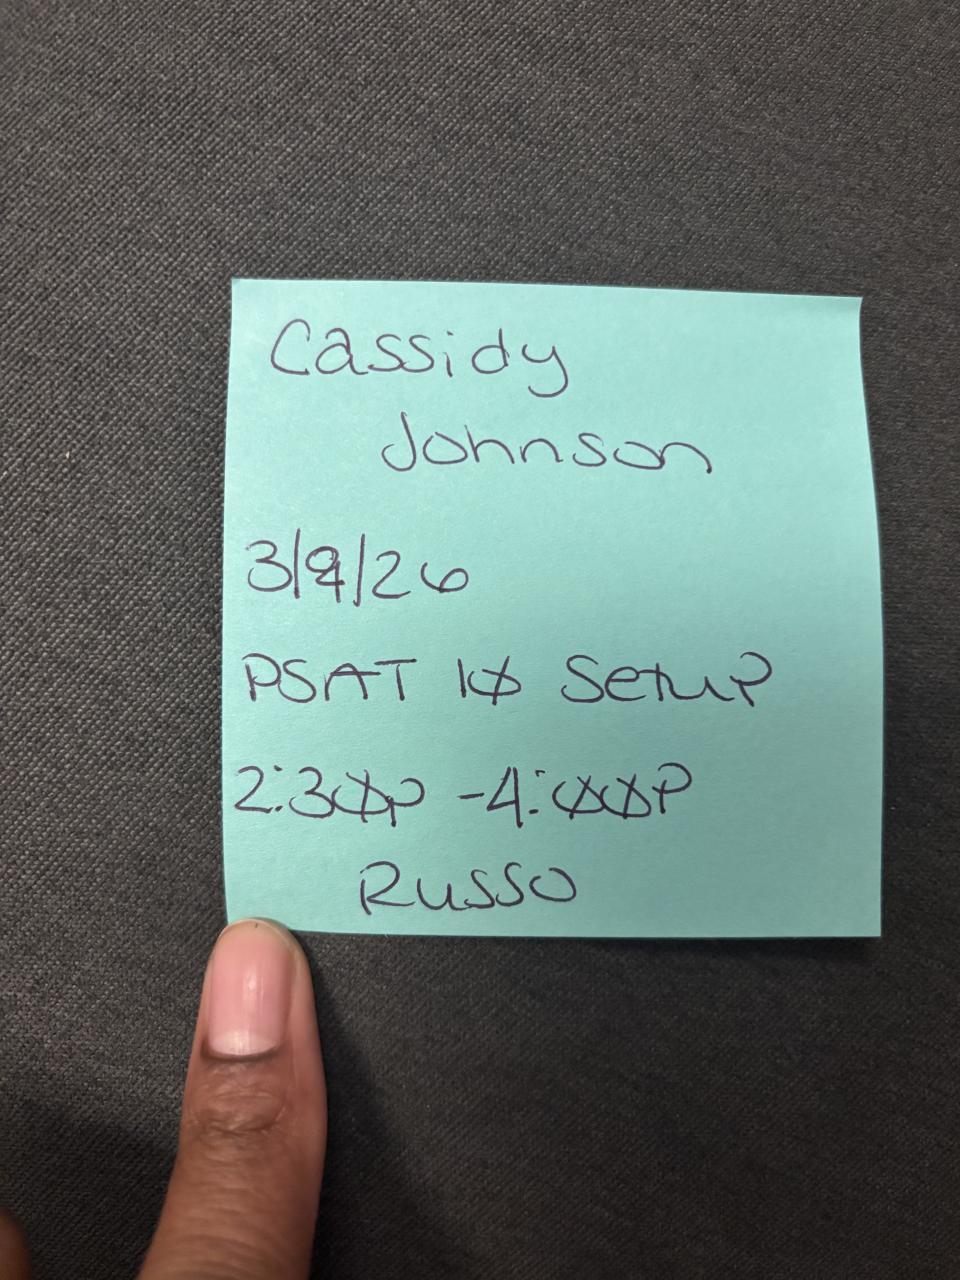 Cassidy
Johnson
3/9/26
PSAT 10 Setup
2:30p - 4:00p
Russo